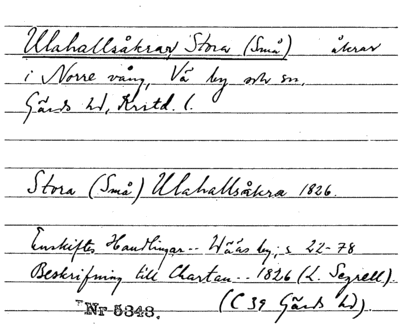 Ulahallsåkrar, Stora (Små) åkrar
i Norre vång, Vä by och sn,
Gärds hd, Kristd. l.
Stora (Små) Ulahallsåkra 1826.
Enskiftes Handlingar -- Wääs by; s 22-78
Beskrifning till Chartan -- 1826 (L. Segrell).
(C 39 Gärds hd).
Nr 5343.